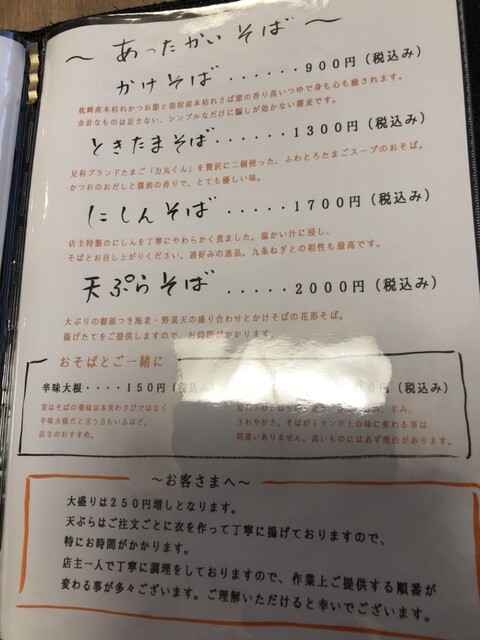 ～ あったかい そば ～
かけそば ......900円(税込み)
枕崎産本枯れかつお節と指宿産本枯れさば節の香り高いつゆで身も心も癒されます。
余計なものは足さない、シンプルなだけに騙しが効かない蕎麦です。
ときたまそば......1300円(税込み)
足利ブランドたまご「力丸くん」を贅沢に二個使った、ふわとろたまごスープのおそば。
かつおのおだしと醤油の香りで、とても優しい味。
にしんそば.....1700円(税込み)
店主特製のにしんを丁寧にやわらかく煮ました。温かい汁に浸し、
そばとお召し上がりください。通好みの逸品。九条ねぎとの相性も最高です。
天ぷらそば .....2000円(税込み)
大ぶりの御頭つき海老・野菜天の盛り合わせとかけそばの花形そば。
揚げたてをご提供しますので、お時間がかかります。
おそばとご一緒に
辛味大根・・・・150円(税込み)
実はそばの薬味は本来わさびではなく
辛味大根だと言う方もいるほど。
店主のおすすめ。
0円(税込み)
辛み、
さわやかさ。そばが1ランク上の味に変わる事は
間違いありません。高いものには必ず理由があります。
～お客さまへ～
大盛りは250円増しとなります。
天ぷらはご注文ごとに衣を作って丁寧に揚げておりますので、
特にお時間がかかります。
店主一人で丁寧に調理をしておりますので、作業上ご提供する順番が
変わる事が多々ございます。ご理解いただけると幸いでございます。